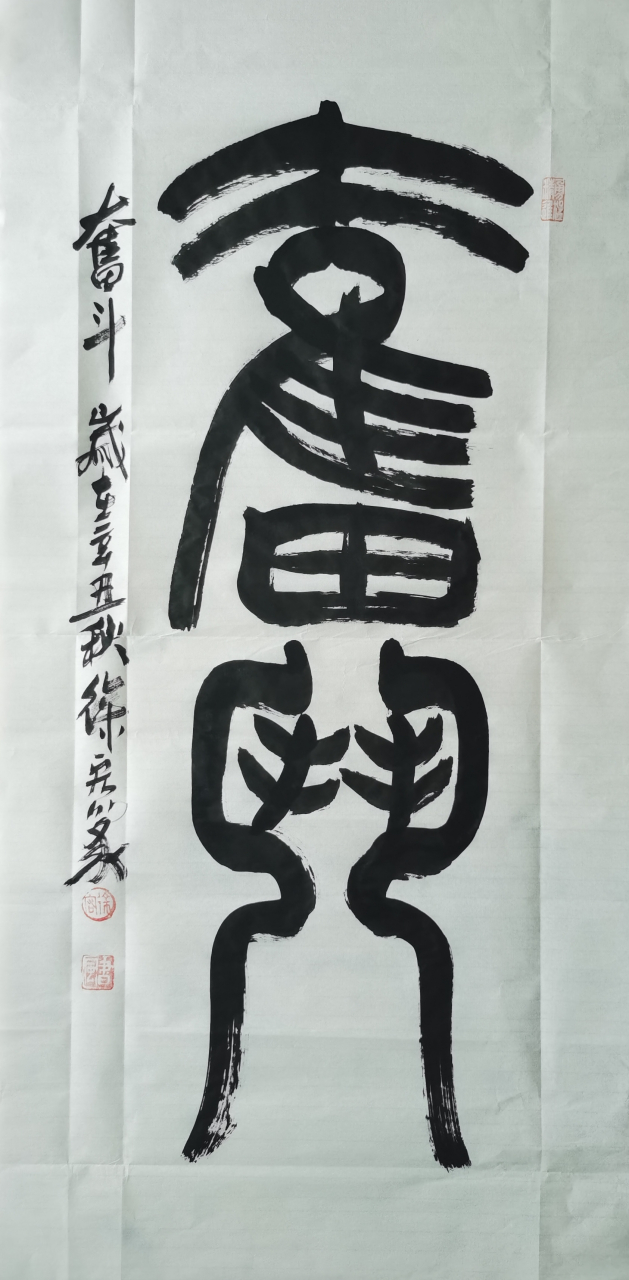 奮鬥
奮斗 歲在辛丑秋 徐 篆